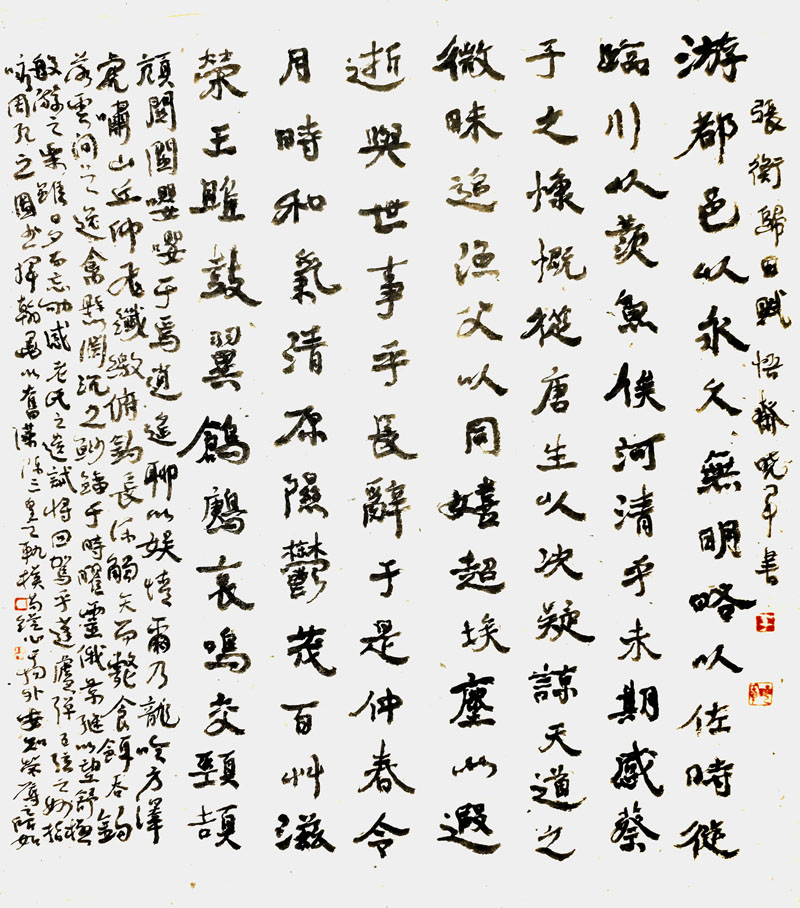 張衡歸田賦悟齋晓軍書
游都邑以永久無明略以佐時徒
臨川以羨魚俟河清乎未期感蔡
子之慷慨從唐生以决疑諒天道之
微昧追漁父以同嬉超埃塵以遐
逝與世事乎長辭于是仲春令
月時和氣清原隰鬱茂百艸滋
榮王雎鼓翼鶬鶊哀鳴交頸頡
頏關關嚶嚶于焉逍遙聊以娱情爾乃龍吟方澤
虎嘯山丘仰飛纖繳俯釣長流觸矢而斃貪餌吞鉤
落雲間之逸禽懸淵沉之鯊鰡于時曜靈俄景繼以望舒極
般遊之樂雖日夕而忘劬感老氏之遺誡將回駕乎蓬廬彈五弦之妙指
咏周孔之圖書揮翰墨以奮藻陳三皇之軌模苟縱心于物外安知榮辱之所如